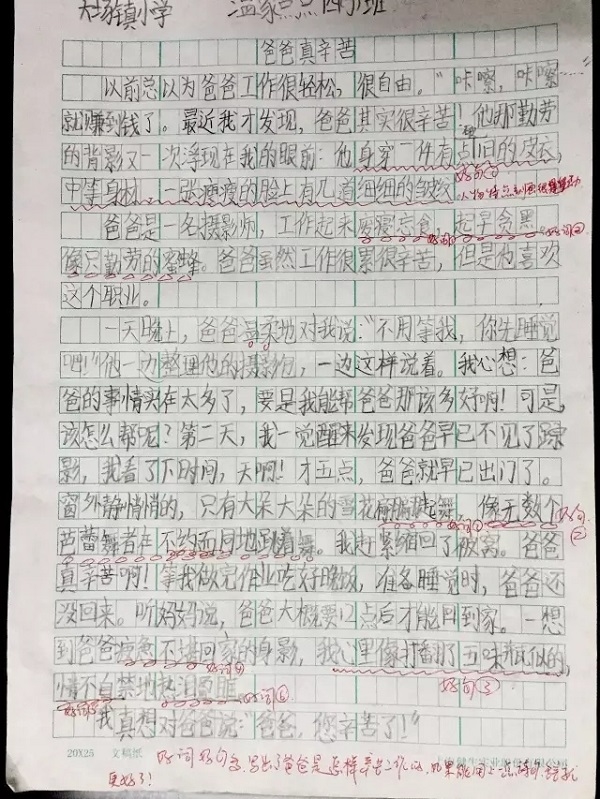 大场镇小学 温家 四(1)班
爸爸真辛苦
以前总以为爸爸工作很轻松，很自由。“咔嚓，咔嚓……”
就赚到钱了。最近我才发现，爸爸其实很辛苦！他那勤劳
的背影又一次浮现在我的眼前：他身穿一件有点旧的皮衣，
中等身材，一张瘦瘦的脸上有几道细细的皱纹
好句①
爸爸是一名摄影师，工作起来废寝忘食、起早贪黑
好词① 好词②
像只勤劳的蜜蜂。爸爸虽然工作很累很辛苦，但是他喜欢
这个职业。
一天晚上，爸爸温柔地对我说：“不用等我，你先睡觉
吧！”他一边整理他的摄影包，一边这样说着。我心想：爸
爸的事情实在太多了，要是我能帮爸爸那该多好啊！可是，
该怎么帮呢？第二天，我一觉醒来发现爸爸早已不见了踪
影，我看了下时间，天啊！才五点，爸爸就早已出门了。
窗外静悄悄的，只有大朵大朵的雪花翩翩起舞，像无数个
好句②
芭蕾舞者在不约而同地跳着舞。我赶紧缩回了被窝。爸爸
真辛苦啊！等我做完作业吃好晚饭，准备睡觉时，爸爸还
没回来。听妈妈说，爸爸大概要12点后才能回到家。一想
到爸爸疲惫不堪回家的身影，我心里像打翻了五味瓶似的，
好句③
情不自禁地热泪盈眶
我真想对爸爸说：“爸爸，您辛苦了！”
20X25 文稿纸
好词好句多，写出了爸爸是怎样辛苦工作的，如果能用上一点
更好了！